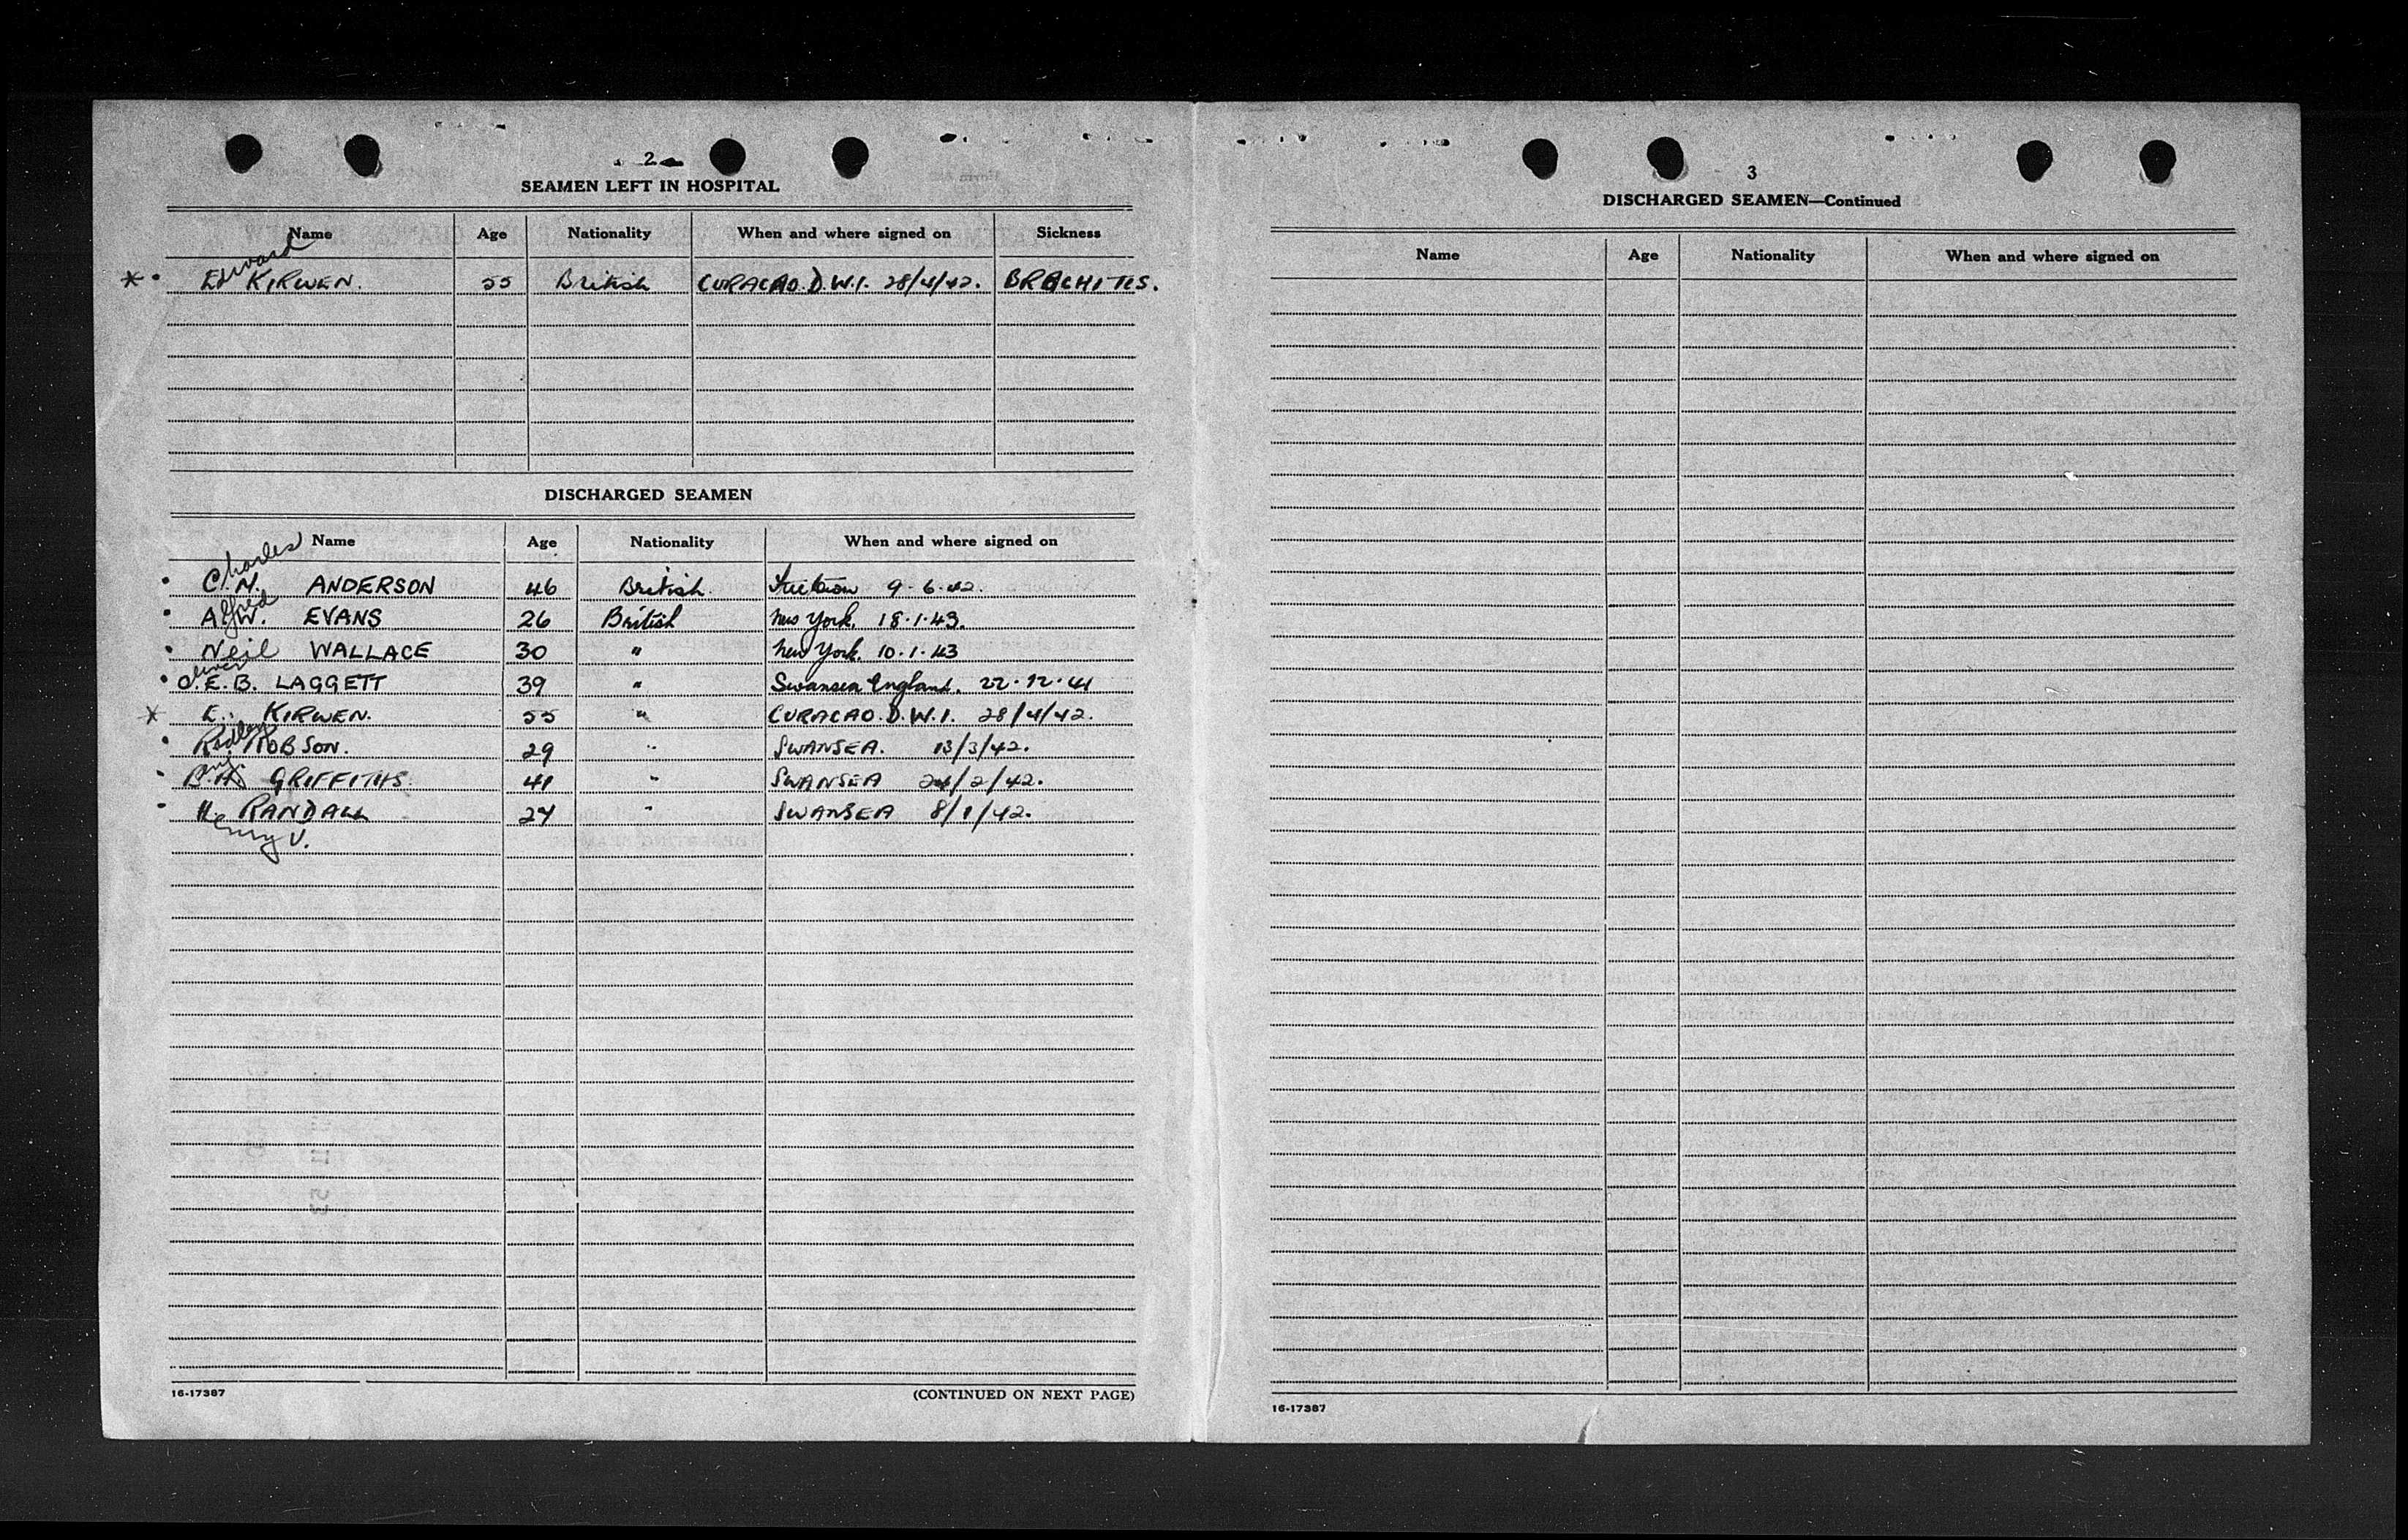 2
SEAMEN LEFT IN HOSPITAL
Name Age Nationality When and where signed on Sickness
Edward
* E. KIRWEN. 55 British CURACAO. D.W.I. 28/4/42. BROCHITES.
DISCHARGED SEAMEN
Name Age Nationality When and where signed on
Charles
C. ANDERSON 46 British 9-6-42.
Alfred
A.W. EVANS 26 British New York. 18.1.43.
Neil WALLACE 30 " New York. 10.1.43
Oliver
O.E.B. LAGGETT 39 " Swansea England. 22.12.41
* E. KIRWEN. 55 " CURACAO. D.W.I. 28/4/42.
Ridley
R. ROBSON. 29 " SWANSEA. 13/3/42.
B.H. GRIFFITHS. 41 " SWANSEA 24/2/42.
H. RANDALL 24 " SWANSEA 8/1/42.
Henry V.
16-17387 (CONTINUED ON NEXT PAGE)
3
DISCHARGED SEAMEN—Continued
Name Age Nationality When and where signed on
16-17387